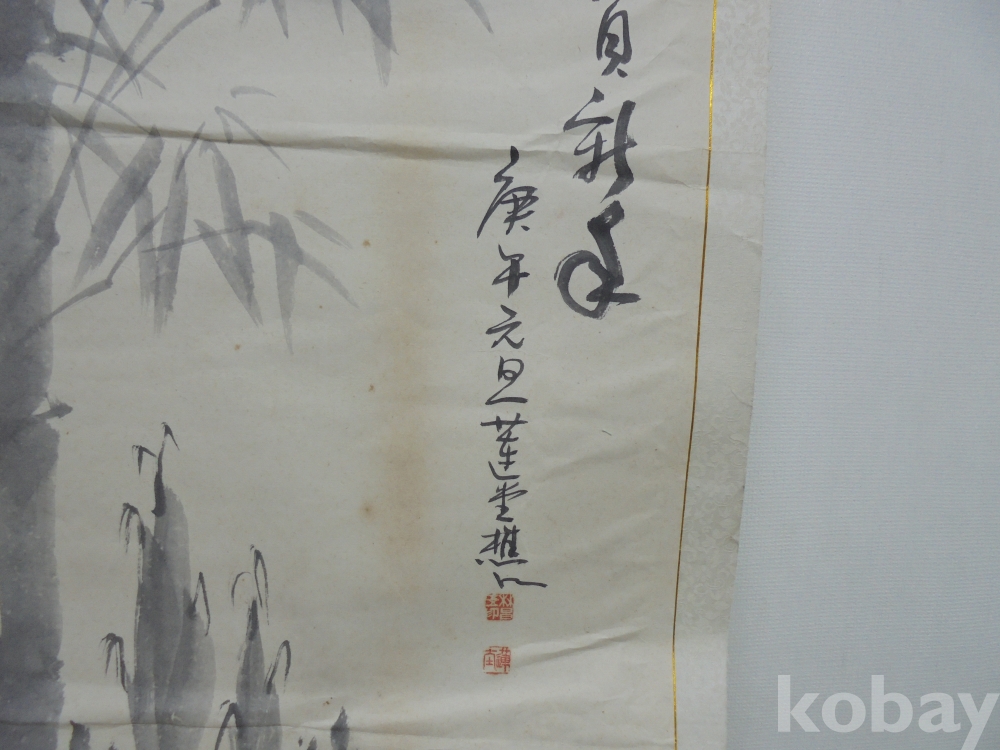 賀新年
庚午元旦蓮堂樵人
kobay